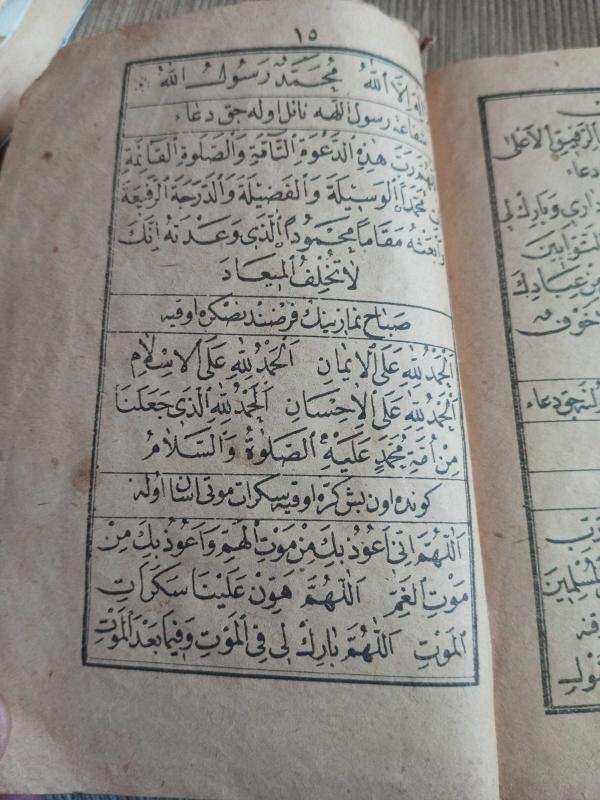 ١٥
اله الا الله محمد رسول الله
شفاعة رسول اللهه نائل اوله جق دعاء
اللهم رب هذه الدعوة التاقة والصلوة القائمة
محمدا الوسيلة والفضيلة والدرجة الرفيعة
وابعثه مقاما محمودا الذى وعدته انك
لا تخلف الميعاد
صباح نمازينك فرضندنصكره اوقيه
الحمد لله على الايمان الحمد لله على الاسلام
الحمد لله على الاحسان الحمد لله الذى جعلنا
من امة محمد عليه الصلوة والسلام
كونده اون بش كره اوقيه سكرات موتى اسان اوله
اللهم انى اعوذ بك من موت الهم واعوذ بك من
موت الغم اللهم هون علينا سكرات
الموت اللهم بارك لى فى الموت وفيما بعد الموت
الرفيق الاعلى
دعاء
وبارك لى
التوابين
من عبادك
خوف
له جق دعاء
رب
المسلمين